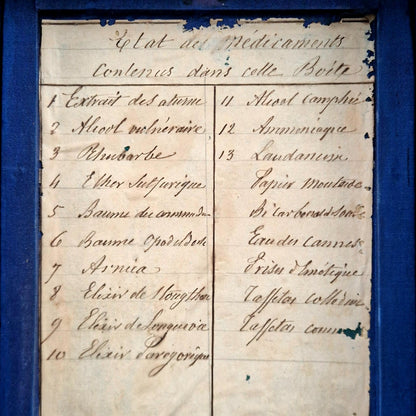 Etat des medicaments
Contenus dans cette Boite
1 Extrait de saturne
2 Alcool vulnéraire
3 Rhubarbe
4 Ether Sulfurique
5 Baume du command
6 Baume Opodeldoch
7 Arnica
8 Elixir de
9 Elixir de Longuevie
10 Elixir Paregorique
11 Alcool camphré
12 Ammoniaque
13 Laudanum
Papier moutarde
Bi Carbonate Soude
Eau des Carmes
Prises d'Emétique
Taffetas
Taffetas